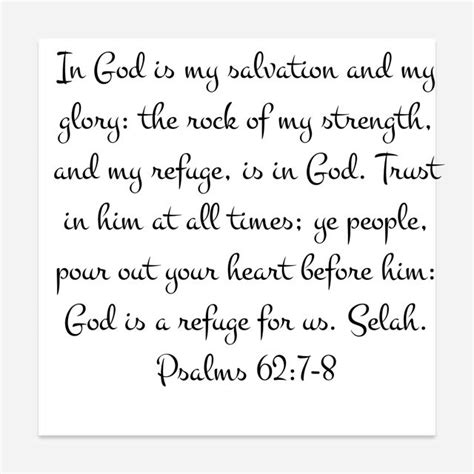 In God is my salvation and my
glory: the rock of my strength,
and my refuge, is in God. Trust
in him at all times; ye people,
pour out your heart before him:
God is a refuge for us. Selah.
Psalms 62:7-8